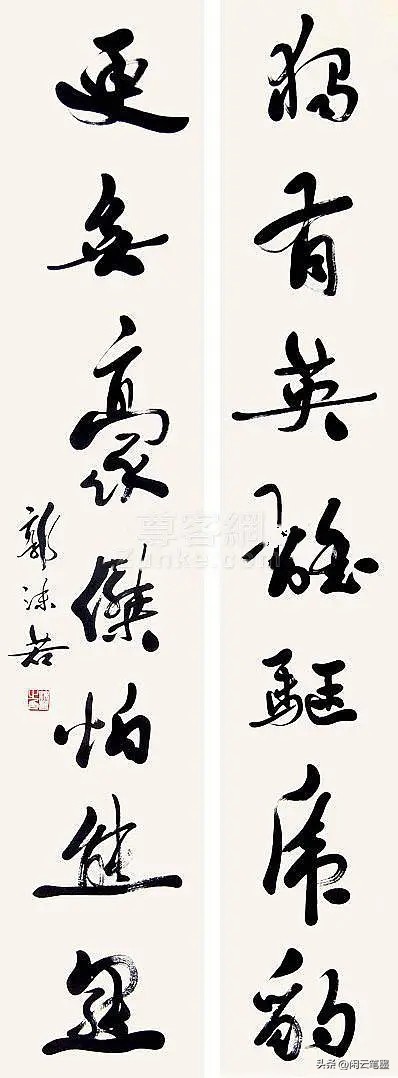 獨有英雄驅虎豹
更無豪傑怕熊羆
郭沫若
尊客網
Zunke.com
头条 @闲云笔墨